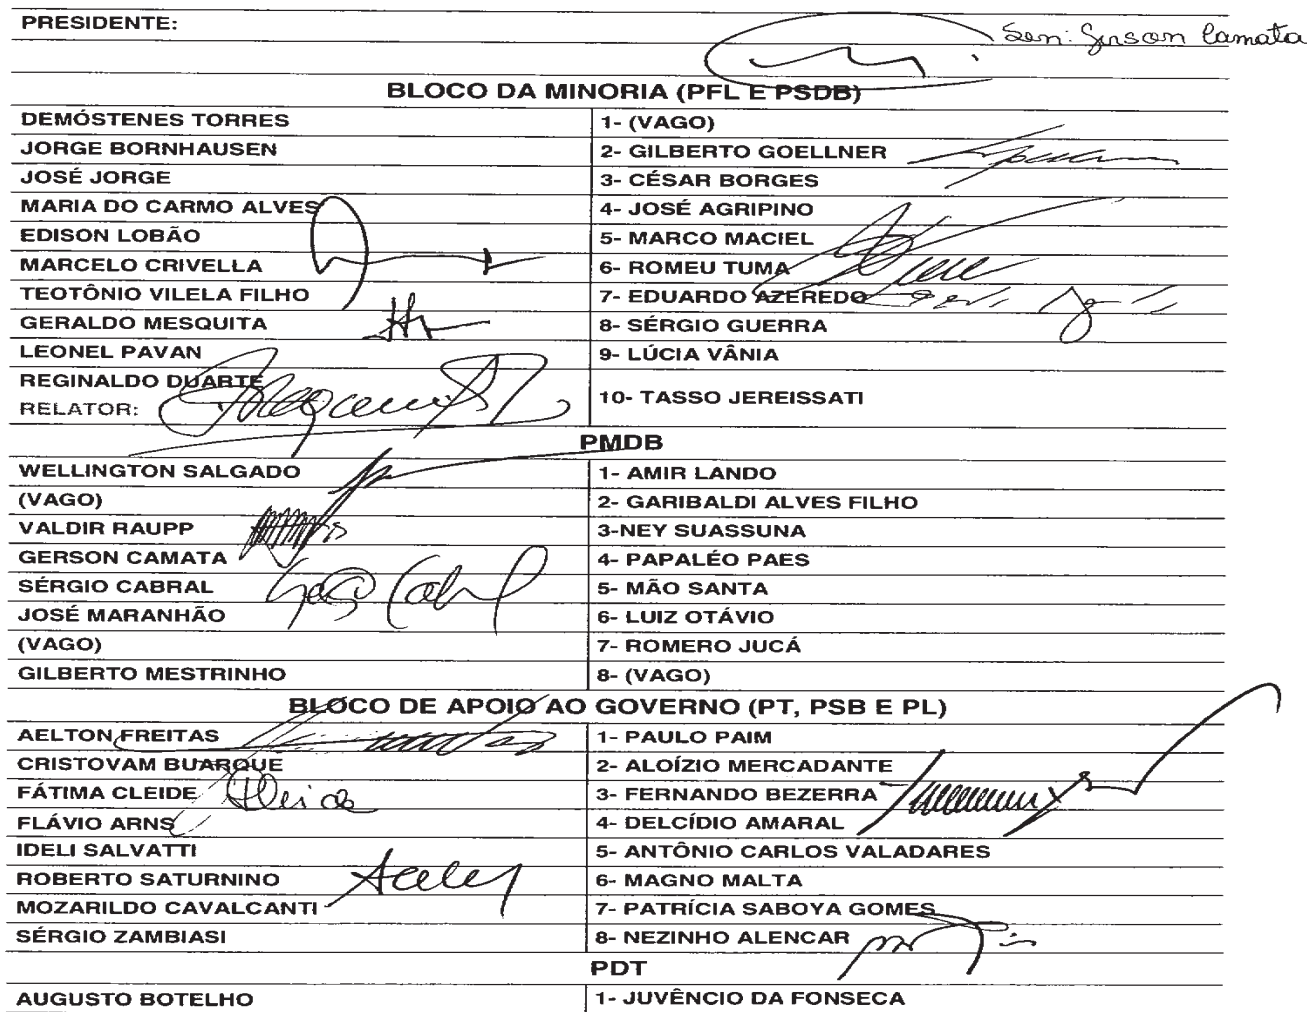 PRESIDENTE:
Sen: Gerson Camata
BLOCO DA MINORIA (PFL E PSDB)
DEMÓSTENES TORRES 1- (VAGO)
JORGE BORNHAUSEN 2- GILBERTO GOELLNER
JOSÉ JORGE 3- CÉSAR BORGES
MARIA DO CARMO ALVES 4- JOSÉ AGRIPINO
EDISON LOBÃO 5- MARCO MACIEL
MARCELO CRIVELLA 6- ROMEU TUMA
TEOTÔNIO VILELA FILHO 7- EDUARDO AZEREDO
GERALDO MESQUITA 8- SÉRGIO GUERRA
LEONEL PAVAN 9- LÚCIA VÂNIA
REGINALDO DUARTE
RELATOR: 10- TASSO JEREISSATI
PMDB
WELLINGTON SALGADO 1- AMIR LANDO
(VAGO) 2- GARIBALDI ALVES FILHO
VALDIR RAUPP 3-NEY SUASSUNA
GERSON CAMATA 4- PAPALÉO PAES
SÉRGIO CABRAL 5- MÃO SANTA
JOSÉ MARANHÃO 6- LUIZ OTÁVIO
(VAGO) 7- ROMERO JUCÁ
GILBERTO MESTRINHO 8- (VAGO)
BLOCO DE APOIO AO GOVERNO (PT, PSB E PL)
AELTON FREITAS 1- PAULO PAIM
CRISTOVAM BUARQUE 2- ALOÍZIO MERCADANTE
FÁTIMA CLEIDE 3- FERNANDO BEZERRA
FLÁVIO ARNS 4- DELCÍDIO AMARAL
IDELI SALVATTI 5- ANTÔNIO CARLOS VALADARES
ROBERTO SATURNINO 6- MAGNO MALTA
MOZARILDO CAVALCANTI 7- PATRÍCIA SABOYA GOMES
SÉRGIO ZAMBIASI 8- NEZINHO ALENCAR
PDT
AUGUSTO BOTELHO 1- JUVÊNCIO DA FONSECA